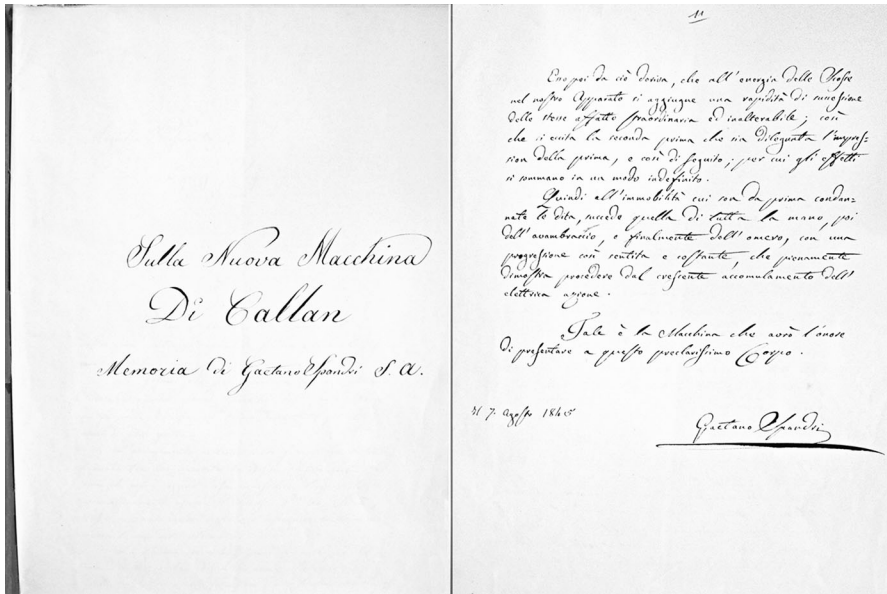 Sulla Nuova Macchina
Di Callan
Memoria di Gaetano Spandri S. A.
11
Eno poi da ciò deriva, che all'energia delle Scosse
nel nostro Apparato si aggiugne una rapidità di successione
delle stesse affatto straordinaria ed inalterabile; così
che si eccita la seconda prima che sia dileguata l'impres-
sion della prima, e così di seguito; per cui gli effetti
si sommano in un modo indefinito.
Quindi all'immobilità cui son da prima condan-
nate le dita, succede quella di tutta la mano, poi
dell'avambraccio, e finalmente dell'omero, con una
progressione così sentita e costante, che pienamente
dimostra procedere dal crescente accomulamento dell'
elettrica azione.
Tale è la Macchina che avrò l'onore
di presentare a questo preclarissimo Corpo.
il 7. agosto 1845
Gaetano Spandri